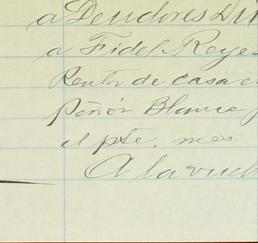 a Deudores Di
a Fidel Reye
Renta de casa e
Peñón Blanco p
el pte. mes.
A la vuel